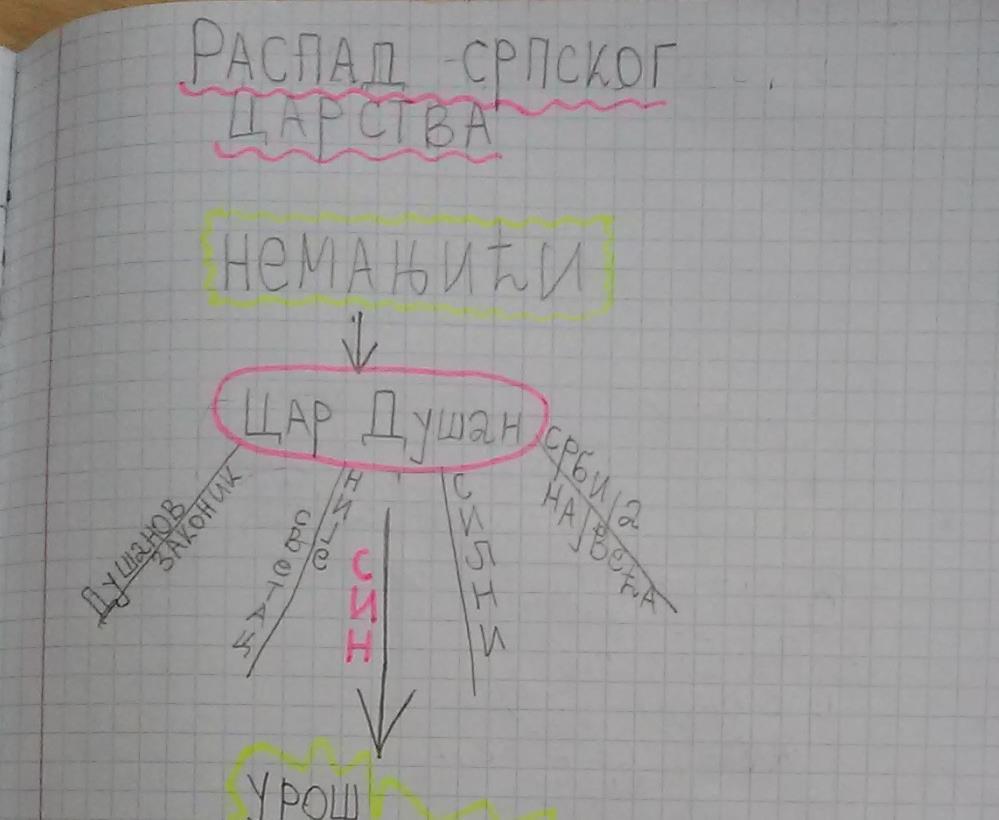 РАСПАД СРПСКОГ
ЦАРСТВА
НеМАЊИЋИ
ЦАР Душан
Душанов
ЗАКОНИК
НИЈе
свеТАЦ
СИН
СИЛНИ
СРБИЈа
НАЈВећА
УРОШ